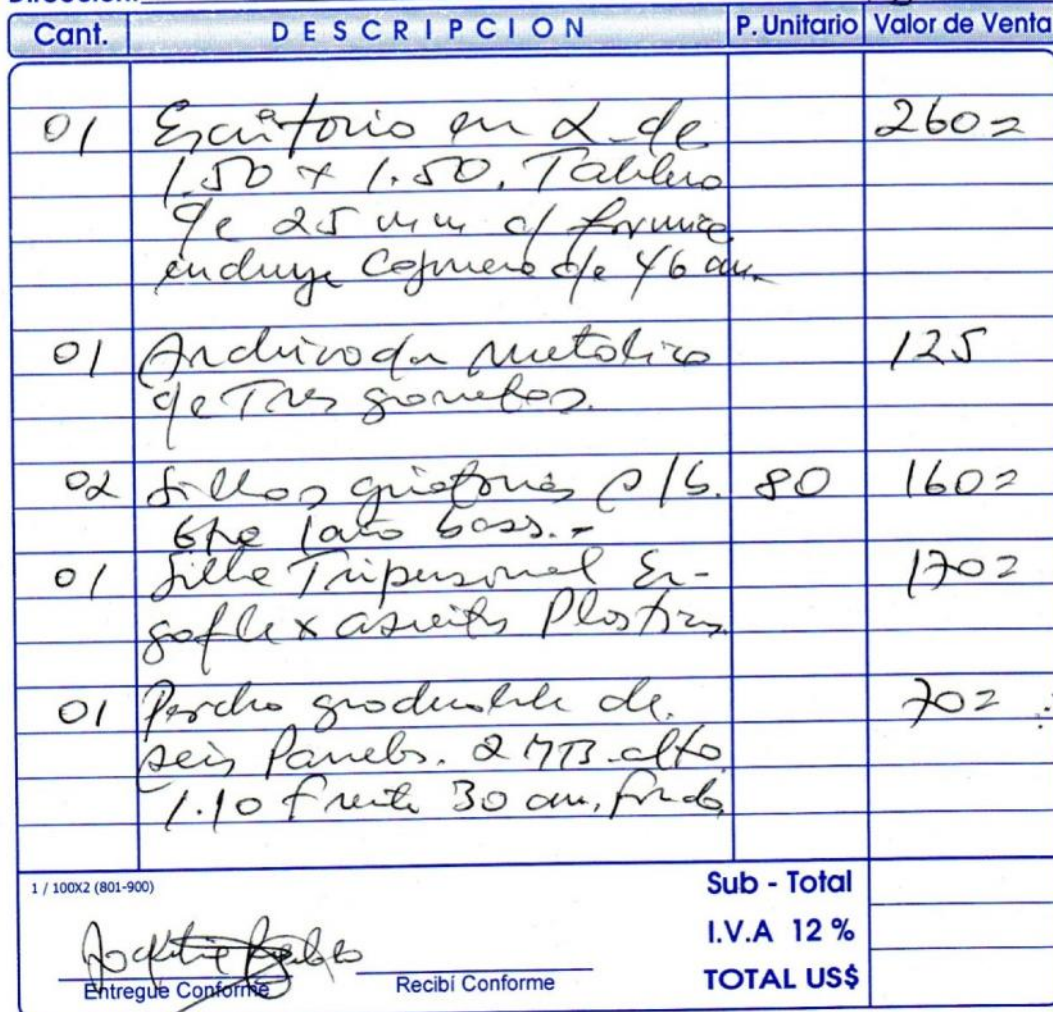 Cant. DESCRIPCION P. Unitario Valor de Venta
01 Escritorio en L de 260=
1.50 x 1.50. Tablero
de 25 mm c/ formica
incluye Cajonero de 46 cm.
01 Archivador metalico 125
de Tres gavetas.
02 Sillas giratorias 80 160=
01 Silla Tripersonal Er- 170=
goflex asientos Plasticos
01 Percha graduable de 70=
seis Paneles. 2 MTS alto
1.10 frente 30 cm, fondo
1 / 100X2 (801-900)
Sub - Total
I.V.A 12 %
TOTAL US$
Entregue Conforme Recibí Conforme